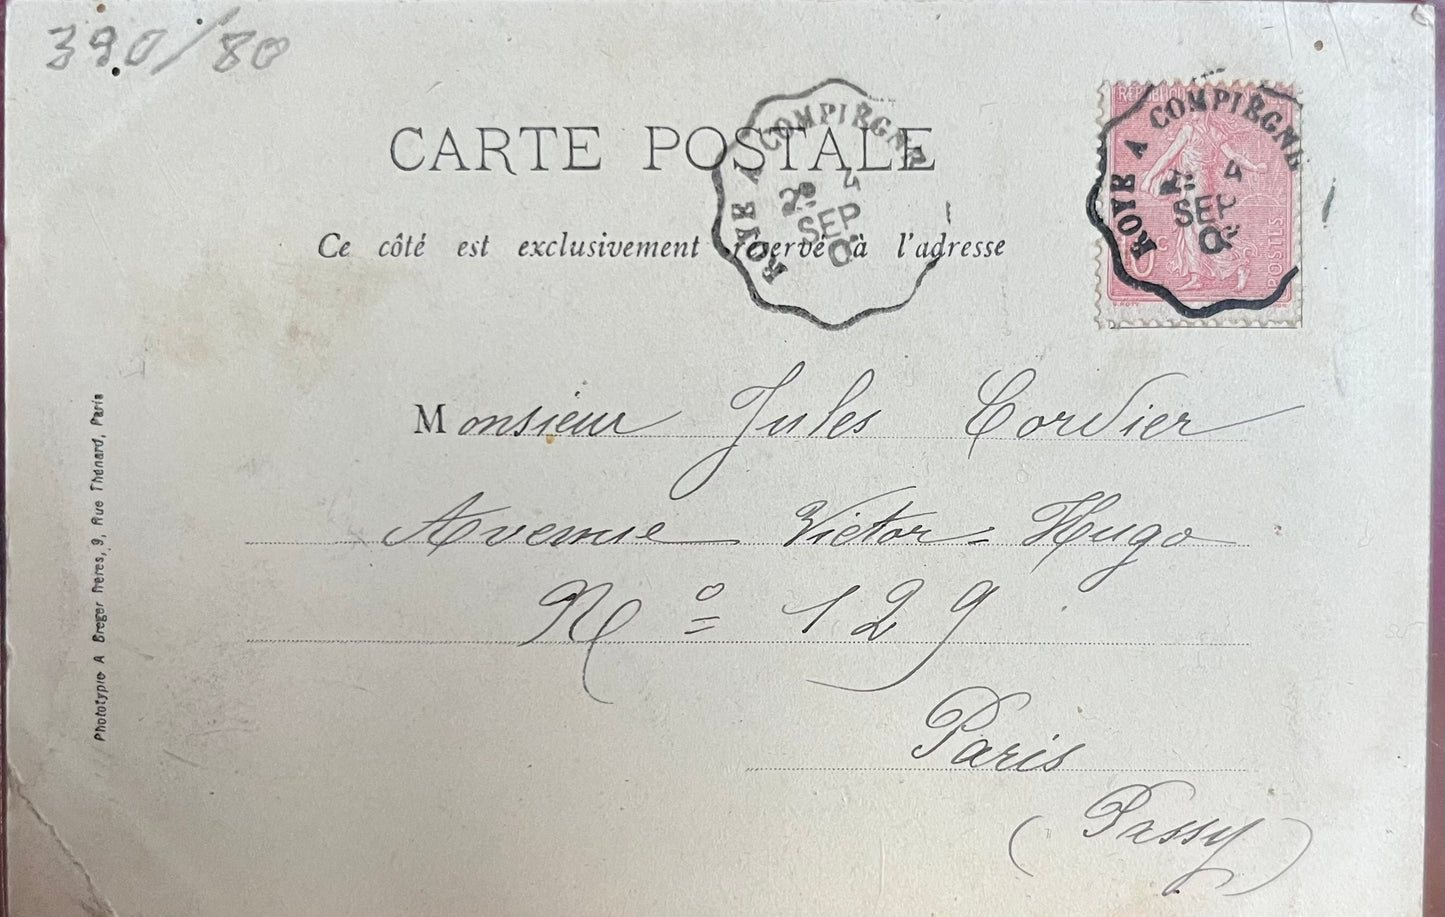 390/80
CARTE POSTALE
Ce côté est exclusivement réservé à l'adresse
ROYE A COMPIEGNE
2º 4
SEP
0
RÉPUBLIQUE
ROYE A COMPIEGNE
2º 4
SEP
0
10c
POSTES
O.ROTY
Monsieur Jules Cordier
Avenue Victor-Hugo
Nº 129
Paris
(Passy)
Phototypie A Breger frères, 9, Rue Thénard, Paris